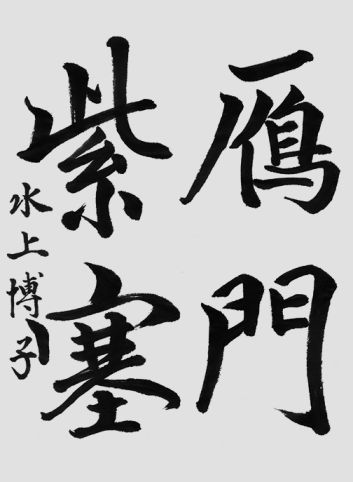 鴈門
紫塞
水上博子